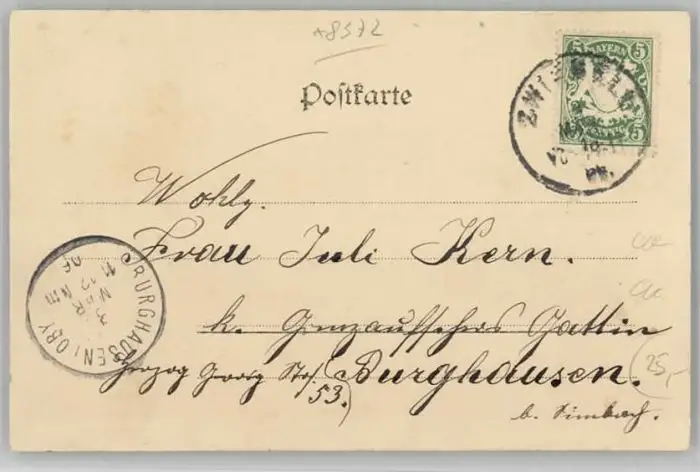 +8572
Postkarte
5 BAYERN 5
5 5
ZWIESEL
Wohlg.
Frau Juli Kern.
k. Grenzaufsehers Gattin
Herzog Georg Str. 53.) Burghausen.
b. Simbach.
BURGHAUSEN OBY
3 MAR
11-12 VM
06
25,-